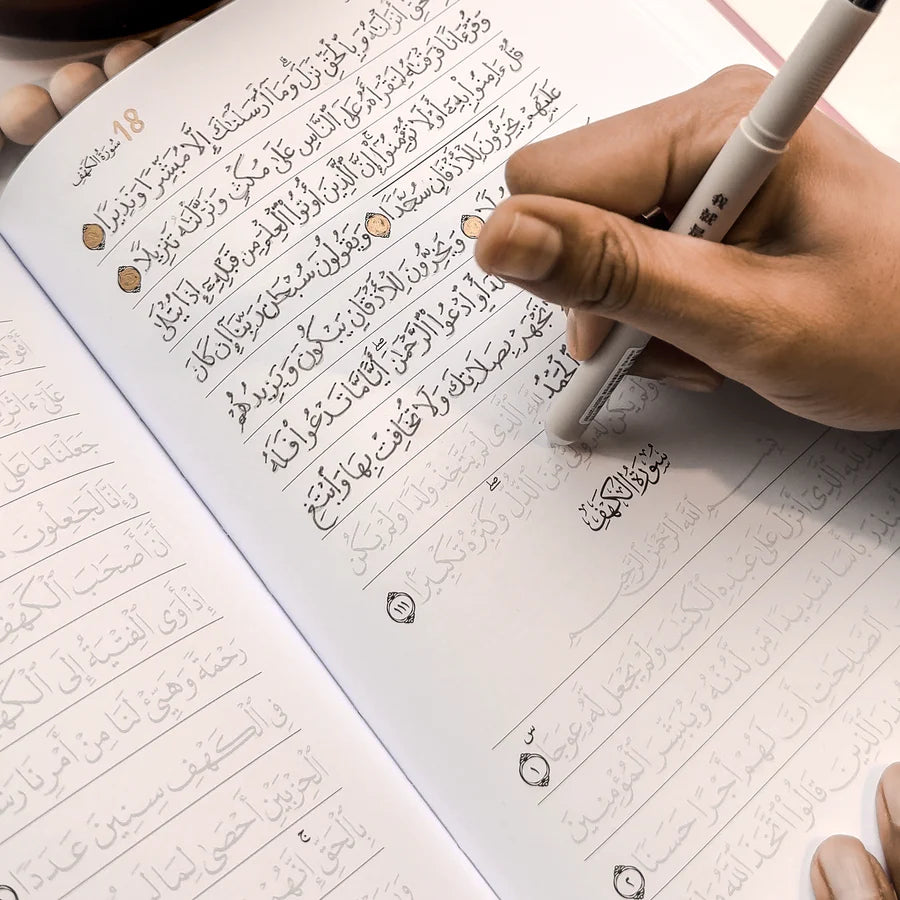 18
سُورَةُ الكَهْفِ
أَنزَلْنَٰهُ وَبِٱلْحَقِّ نَزَلَ ۗ وَمَآ أَرْسَلْنَٰكَ إِلَّا مُبَشِّرًا وَنَذِيرًا
وَقُرْءَانًا فَرَقْنَٰهُ لِتَقْرَأَهُۥ عَلَى ٱلنَّاسِ عَلَىٰ مُكْثٍ وَنَزَّلْنَٰهُ تَنزِيلًا
قُلْ ءَامِنُوا۟ بِهِۦٓ أَوْ لَا تُؤْمِنُوٓا۟ ۚ إِنَّ ٱلَّذِينَ أُوتُوا۟ ٱلْعِلْمَ مِن قَبْلِهِۦٓ إِذَا يُتْلَىٰ
عَلَيْهِمْ يَخِرُّونَ لِلْأَذْقَانِ سُجَّدًا وَيَقُولُونَ سُبْحَٰنَ رَبِّنَآ إِن كَانَ
وَيَخِرُّونَ لِلْأَذْقَانِ يَبْكُونَ وَيَزِيدُهُمْ
أَوِ ٱدْعُوا۟ ٱلرَّحْمَٰنَ ۖ أَيًّا مَّا تَدْعُوا۟ فَلَهُ
تَجْهَرْ بِصَلَاتِكَ وَلَا تُخَافِتْ بِهَا وَٱبْتَغِ
ٱلْحَمْدُ لِلَّهِ ٱلَّذِى لَمْ يَتَّخِذْ وَلَدًا وَلَمْ يَكُن
وَلَمْ يَكُن لَّهُۥ وَلِىٌّ مِّنَ ٱلذُّلِّ ۖ وَكَبِّرْهُ تَكْبِيرًا ١١١
سُورَةُ الكَهْفِ
بِسْمِ ٱللَّهِ ٱلرَّحْمَٰنِ ٱلرَّحِيمِ
لِلَّهِ ٱلَّذِىٓ أَنزَلَ عَلَىٰ عَبْدِهِ ٱلْكِتَٰبَ وَلَمْ يَجْعَل لَّهُۥ عِوَجَا س ١
لِّيُنذِرَ بَأْسًا شَدِيدًا مِّن لَّدُنْهُ وَيُبَشِّرَ ٱلْمُؤْمِنِينَ
ٱلصَّٰلِحَٰتِ أَنَّ لَهُمْ أَجْرًا حَسَنًا ٢
ٱلَّذِينَ قَالُوا۟ ٱتَّخَذَ ٱللَّهُ
عَلَىٰٓ ءَاثَٰرِ
جَعَلْنَا مَا عَلَى
وَإِنَّا لَجَٰعِلُونَ مَا
أَنَّ أَصْحَٰبَ ٱلْكَهْفِ
إِذْ أَوَى ٱلْفِتْيَةُ إِلَى ٱلْكَهْفِ
رَحْمَةً وَهَيِّئْ لَنَا مِنْ أَمْرِنَا رَشَ
فِى ٱلْكَهْفِ سِنِينَ عَدَدًا
ٱلْحِزْبَيْنِ أَحْصَىٰ لِمَا لَبِ
بِٱلْحَقِّ ۚ إِنَّهُمْ